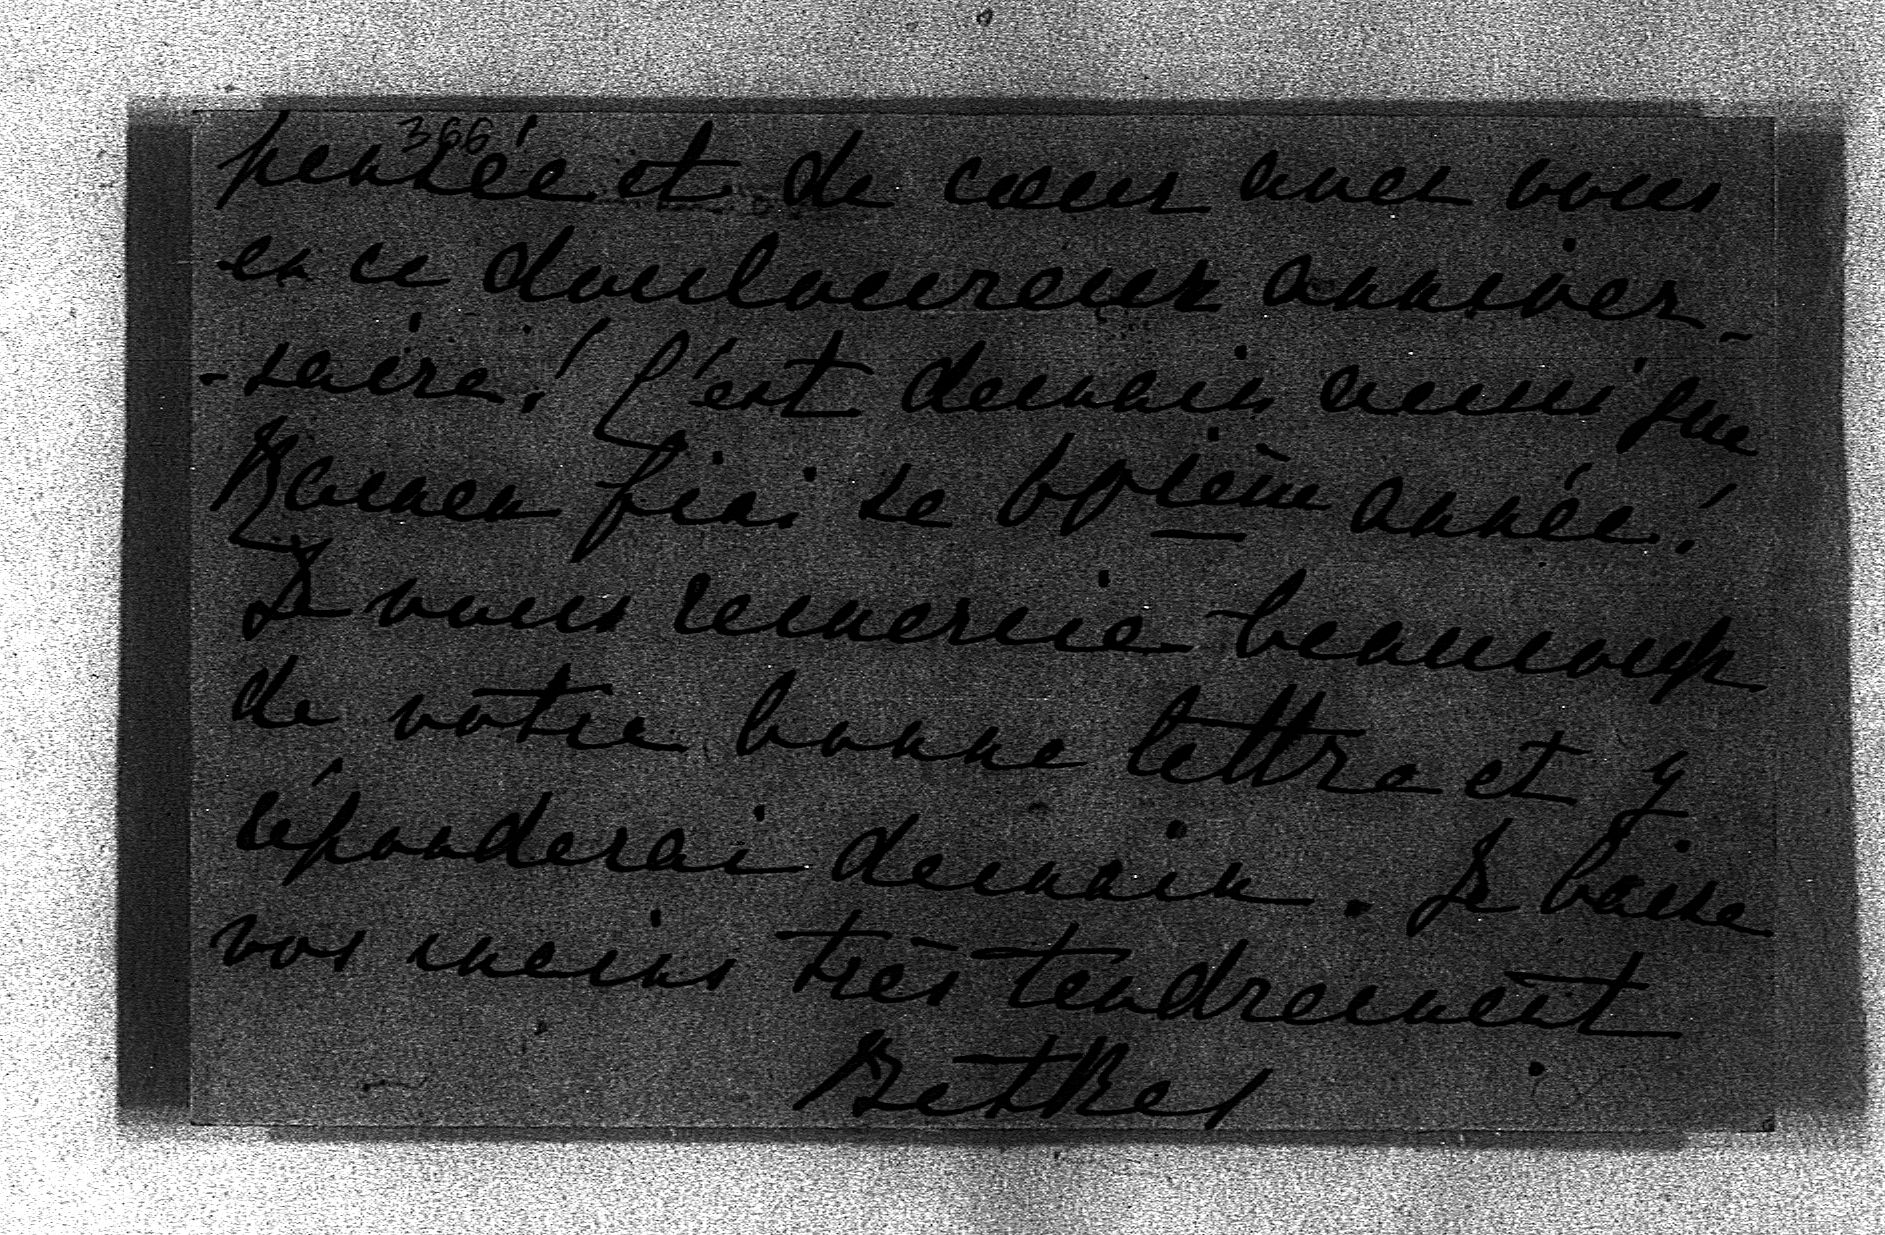 366
pensée et de coeur avec vous
en ce douloureux anniver-
-saire! C'est demain aussi que
fini sa année!
Je vous remercie beaucoup
de votre bonne lettre et y
réponderai demain. Je baise
vos mains très tendrement